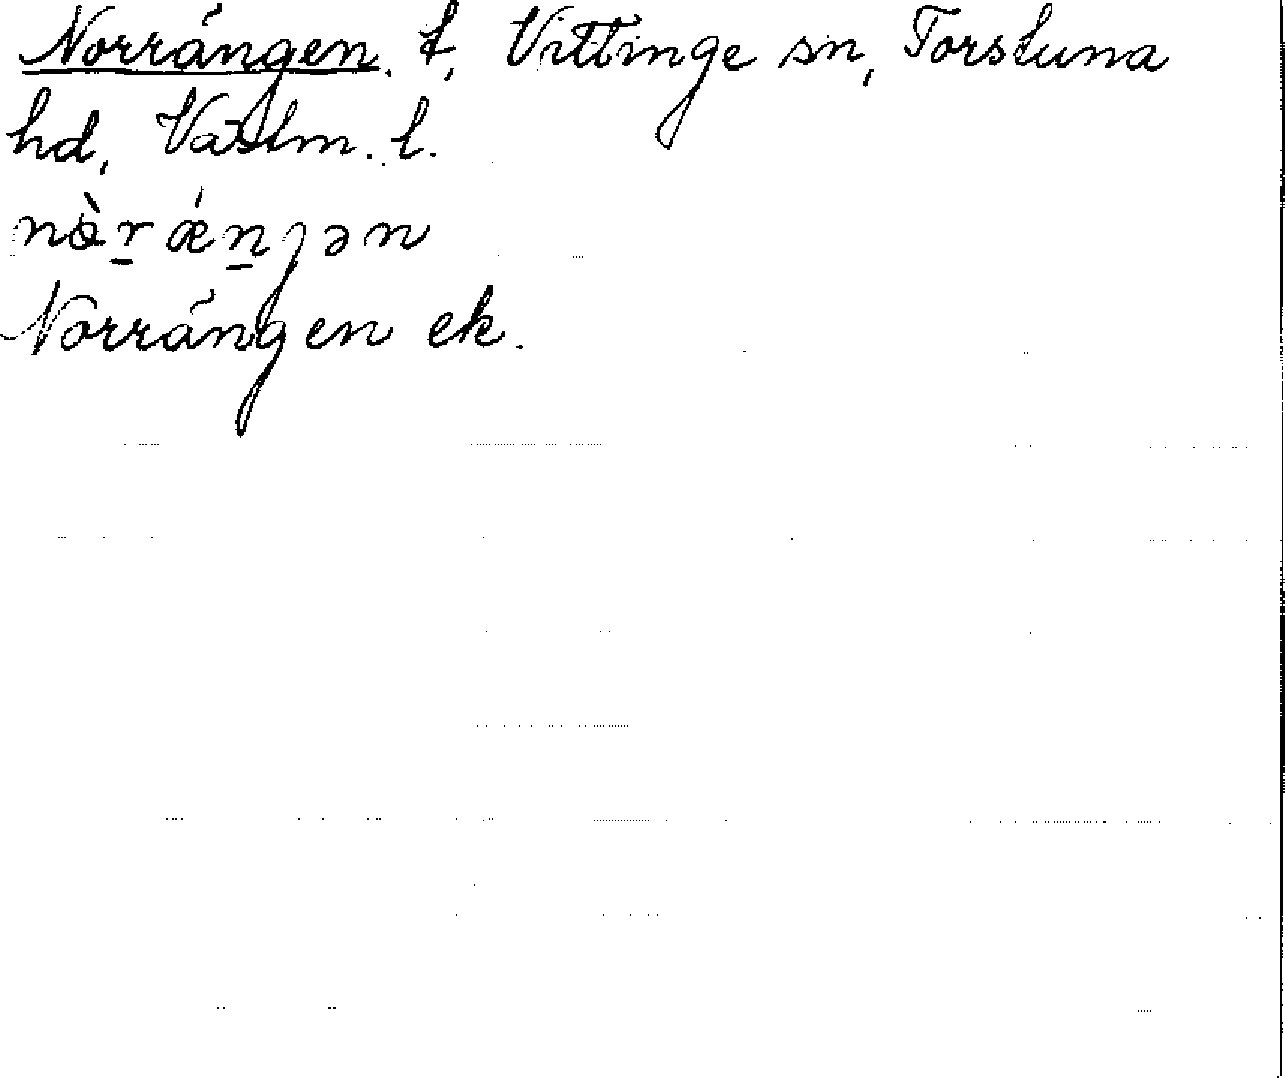 Norrängen. t, Vittinge sn, Torstuna
hd, Västm. l.
nàr ǽnȷən
Norrängen ek.